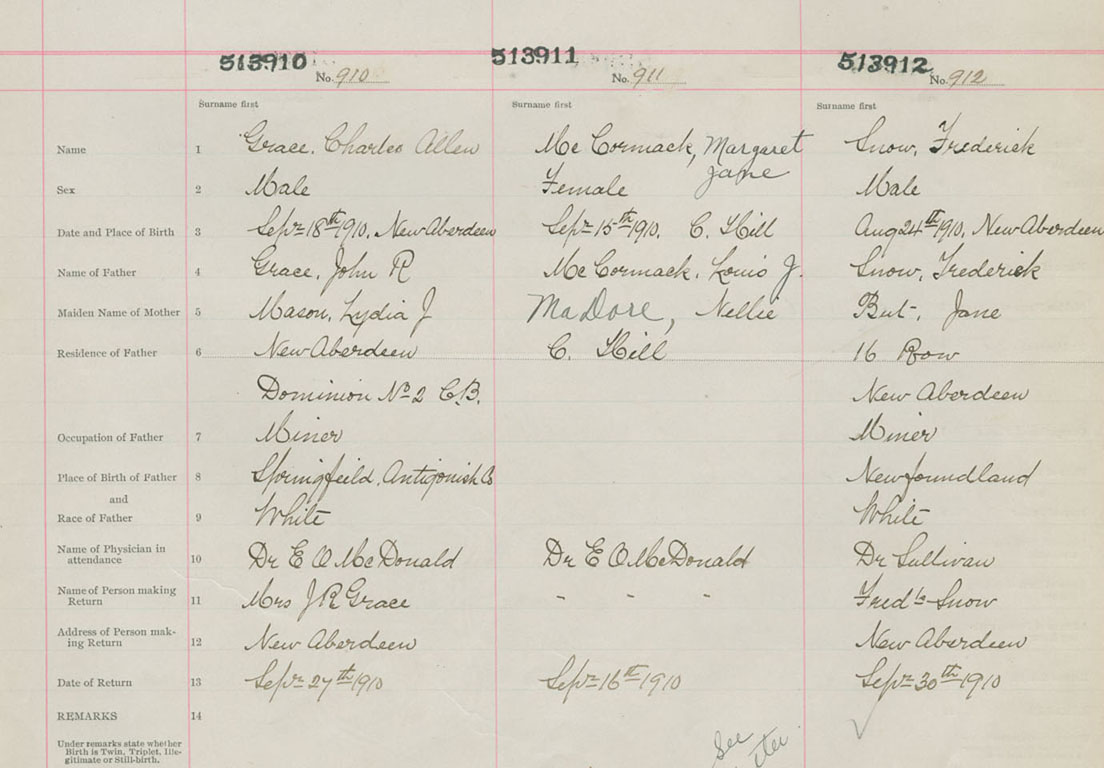 513910 513911 513912
No. 910 No. 911 No. 912
Surname first Surname first Surname first
Name 1 Grace, Charles Allen Mc Cormack, Margaret Jane Snow, Frederick
Sex 2 Male Female Male
Date and Place of Birth 3 Sepr 18th 1910, New Aberdeen Sepr 15th 1910, C. Hill Aug 24th 1910, New Aberdeen
Name of Father 4 Grace, John R Mc Cormack, Louis J. Snow, Frederick
Maiden Name of Mother 5 Mason, Lydia J MaDore, Nellie But, Jane
Residence of Father 6 New Aberdeen C. Hill 16 Row
Dominion No 2 C.B. New Aberdeen
Occupation of Father 7 Miner Miner
Place of Birth of Father 8 Springfeild, Antigonish Co Newfoundland
and
Race of Father 9 White White
Name of Physician in
attendance 10 Dr E O McDonald Dr E O McDonald Dr Sullivan
Name of Person making
Return 11 Mrs J R Grace " " " Fredk Snow
Address of Person mak-
ing Return 12 New Aberdeen New Aberdeen
Date of Return 13 Sepr 27th 1910 Sepr 16th 1910 Sepr 30th 1910
REMARKS 14
Under remarks state whether
Birth is Twin, Triplet, Ille-
gitimate or Still-birth.
See